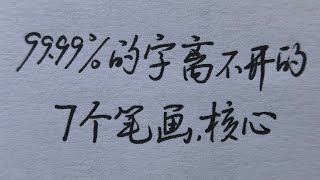 99.99%的字离不开的
7个笔画、核心